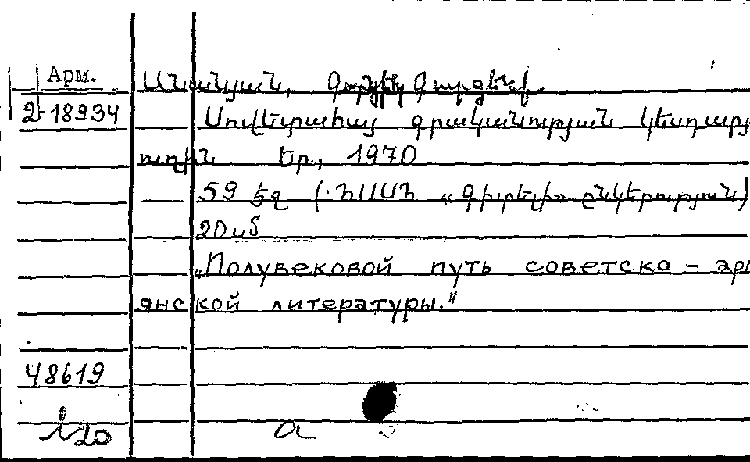 Арм.
2-18934
Անանյան, Գուրգեն
Սովետահայ գրականության կեսդարյա
ուղին Եր., 1970
59 էջ (ՀՍՍՀ «Գիտելիք» ընկերություն)
20 սմ
„Полувековой путь советско-арм
янской литературы."
48619
120
a